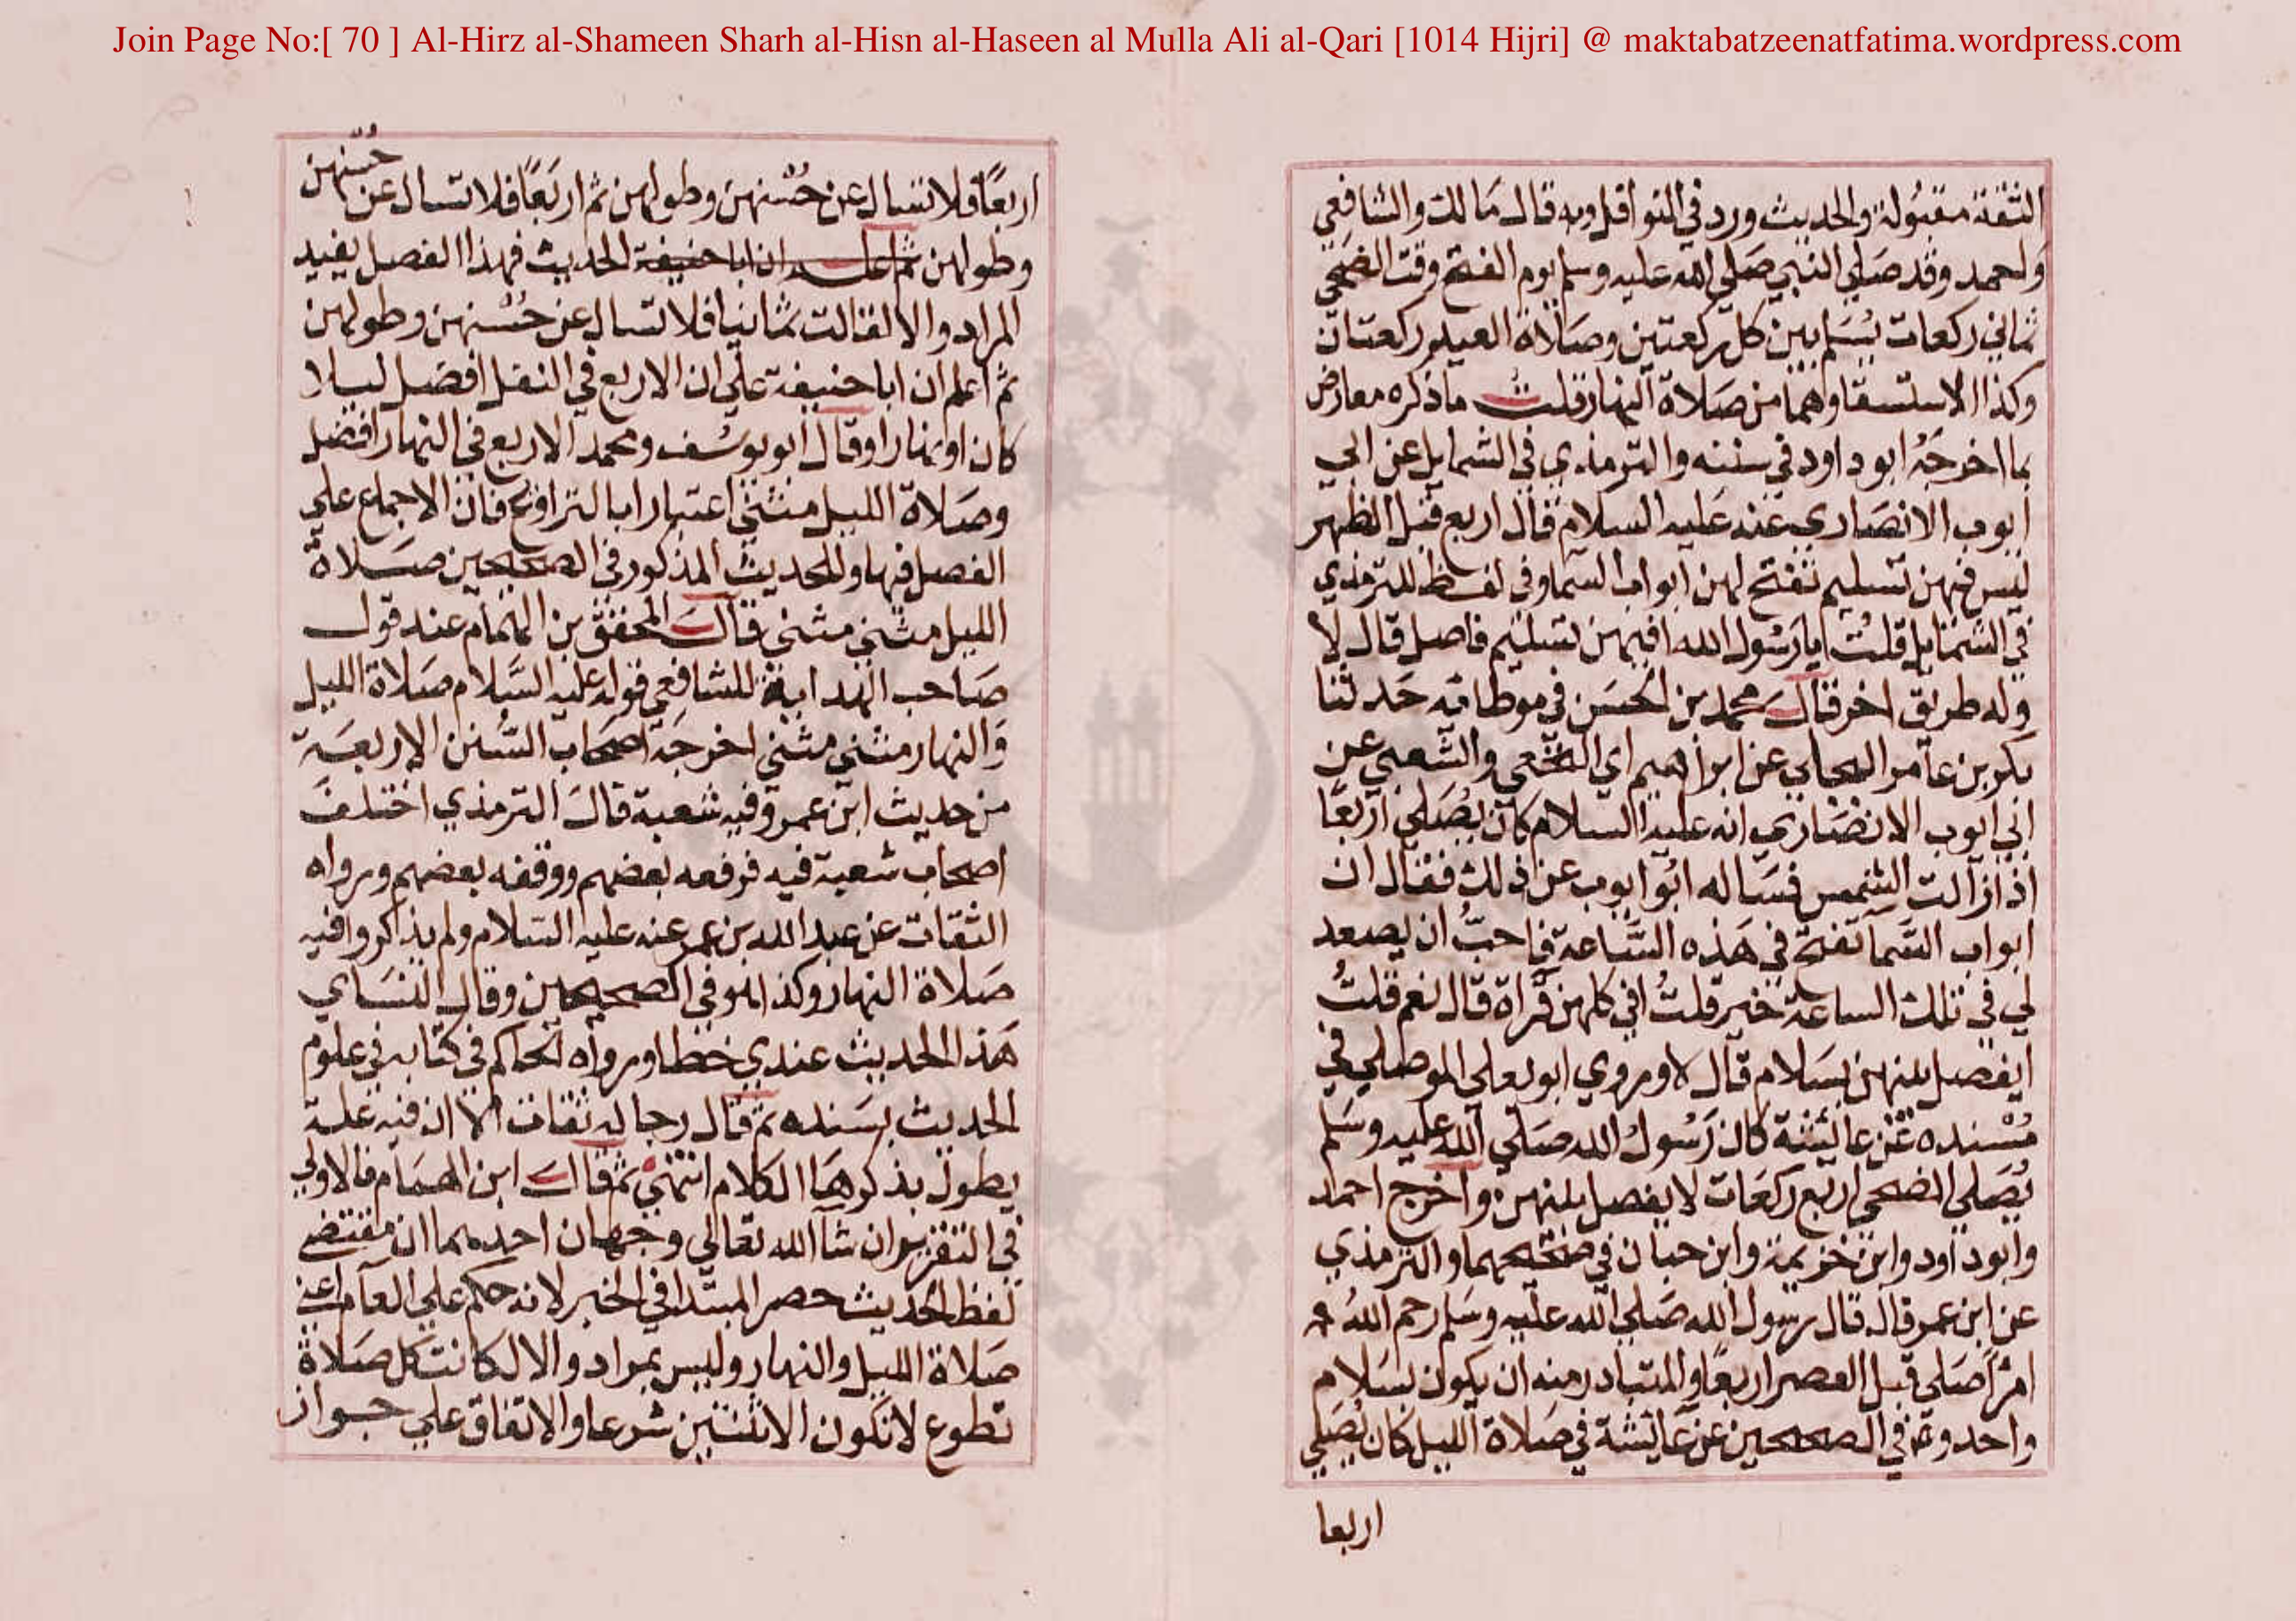 Join Page No:[ 70 ] Al-Hirz al-Shameen Sharh al-Hisn al-Haseen al Mulla Ali al-Qari [1014 Hijri] @ maktabatzeenatfatima.wordpress.com
الثقة مقبولة والحديث ورد في النوافل وبه قال مالك والشافعي
ولحمد وقد صلي النبي صلي الله عليه وسلم يوم الفتح وقت الضحي
ثماني ركعات يسلم بين كل ركعتين وصلاة العيد ركعتان
وكذا الاستسقا وهما من صلاة النهار قلت ماذكره معارض
بما اخرجه ابو داود في سننه والترمذي في الشمايل عن ابي
ايوب الانصاري عنه عليه السلام قال اربع قبل الظهر
ليس فيهن تسليم تفتح لهن ابواب السما وفي لفظ للترمذي
في الشمايل قلت يا رسول الله افيهن تسليم فاصل قال لا
وله طريق اخر قال محمد بن الحسن في موطايه حدثنا
بكر بن عامر البجلي عن ابراهيم اي النخعي والشعبي عن
ابي ايوب الانصاري انه عليه السلام كان يصلي اربعا
اذا زالت الشمس فساله ابو ايوب عن ذلك فقال ان
ابواب السما تفتح في هذه الساعة فاحب ان يصعد
لي في تلك الساعة خير قلت افي كلهن قراة قال نعم قلت
ايفصل بينهن بسلام قال لا وروي ابو يعلي الموصلي في
مسنده عن عائشة كان رسول الله صلي الله عليه وسلم
يصلي الضحي اربع ركعات لا يفصل بينهن واخرج احمد
وابو داود وابن خزيمة وابن حبان في صحيحيهما والترمذي
عن ابن عمر قال قال رسول الله صلي الله عليه وسلم رحم الله
امرًا صلي قبل العصر اربعا والمتبادر منه ان يكون بسلام
واحد وفي الصحيحين عن عائشة في صلاة الليل كان يصلي
اربعا
اربعًا فلا تسال عن حُسْنهن وطولهن ثم اربعًا فلا تسال عن حُسنهن
وطولهن ثم ان ابا حنيفة الحديث فهذا الفصل يفيد
المراد والا لقالت ثمانيا فلا تسال عن حسنهن وطولهن
ثم اعلم ان ابا حنيفة علي ان الاربع في النفل افضل ليلا
كان او نهارا وقال ابو يوسف ومحمد الاربع في النهار افضل
وصلاة الليل مثني اعتبارا بالتراويح فان الاجماع علي
الفصل فيها وللحديث المذكور في الصحيحين صلاة
الليل مثني مثني قال المحقق بن الهمام عند قول
صاحب الهداية للشافعي قوله عليه السلام صلاة الليل
والنهار مثني مثني اخرجه اصحاب السنن الاربعة
من حديث ابن عمر وفيه شعبة قال الترمذي اختلف
اصحاب شعبة فيه فرفعه بعضهم ووقفه بعضهم ورواه
الثقات عن عبد الله بن عمر عنه عليه السلام ولم يذكروا فيه
صلاة النهار وكذا هو في الصحيحين وقال النساي
هذا الحديث عندي خطا ورواه الحاكم في كتابه في علوم
الحديث بسنده ثم قال رجاله ثقات الا ان فيه علة
يطول بذكرها الكلام انتهي ثم قال ابن الهمام فالاولي
في التقرير ان شا الله تعالي وجهان احدهما ان مقتضي
لفظ الحديث حصر المبتدا في الخبر لانه حكم علي العام اعني
صلاة الليل والنهار وليس بمراد والا لكانت كل صلاة
تطوع لا تكون الا ثنتين شرعا والاتفاق علي جواز